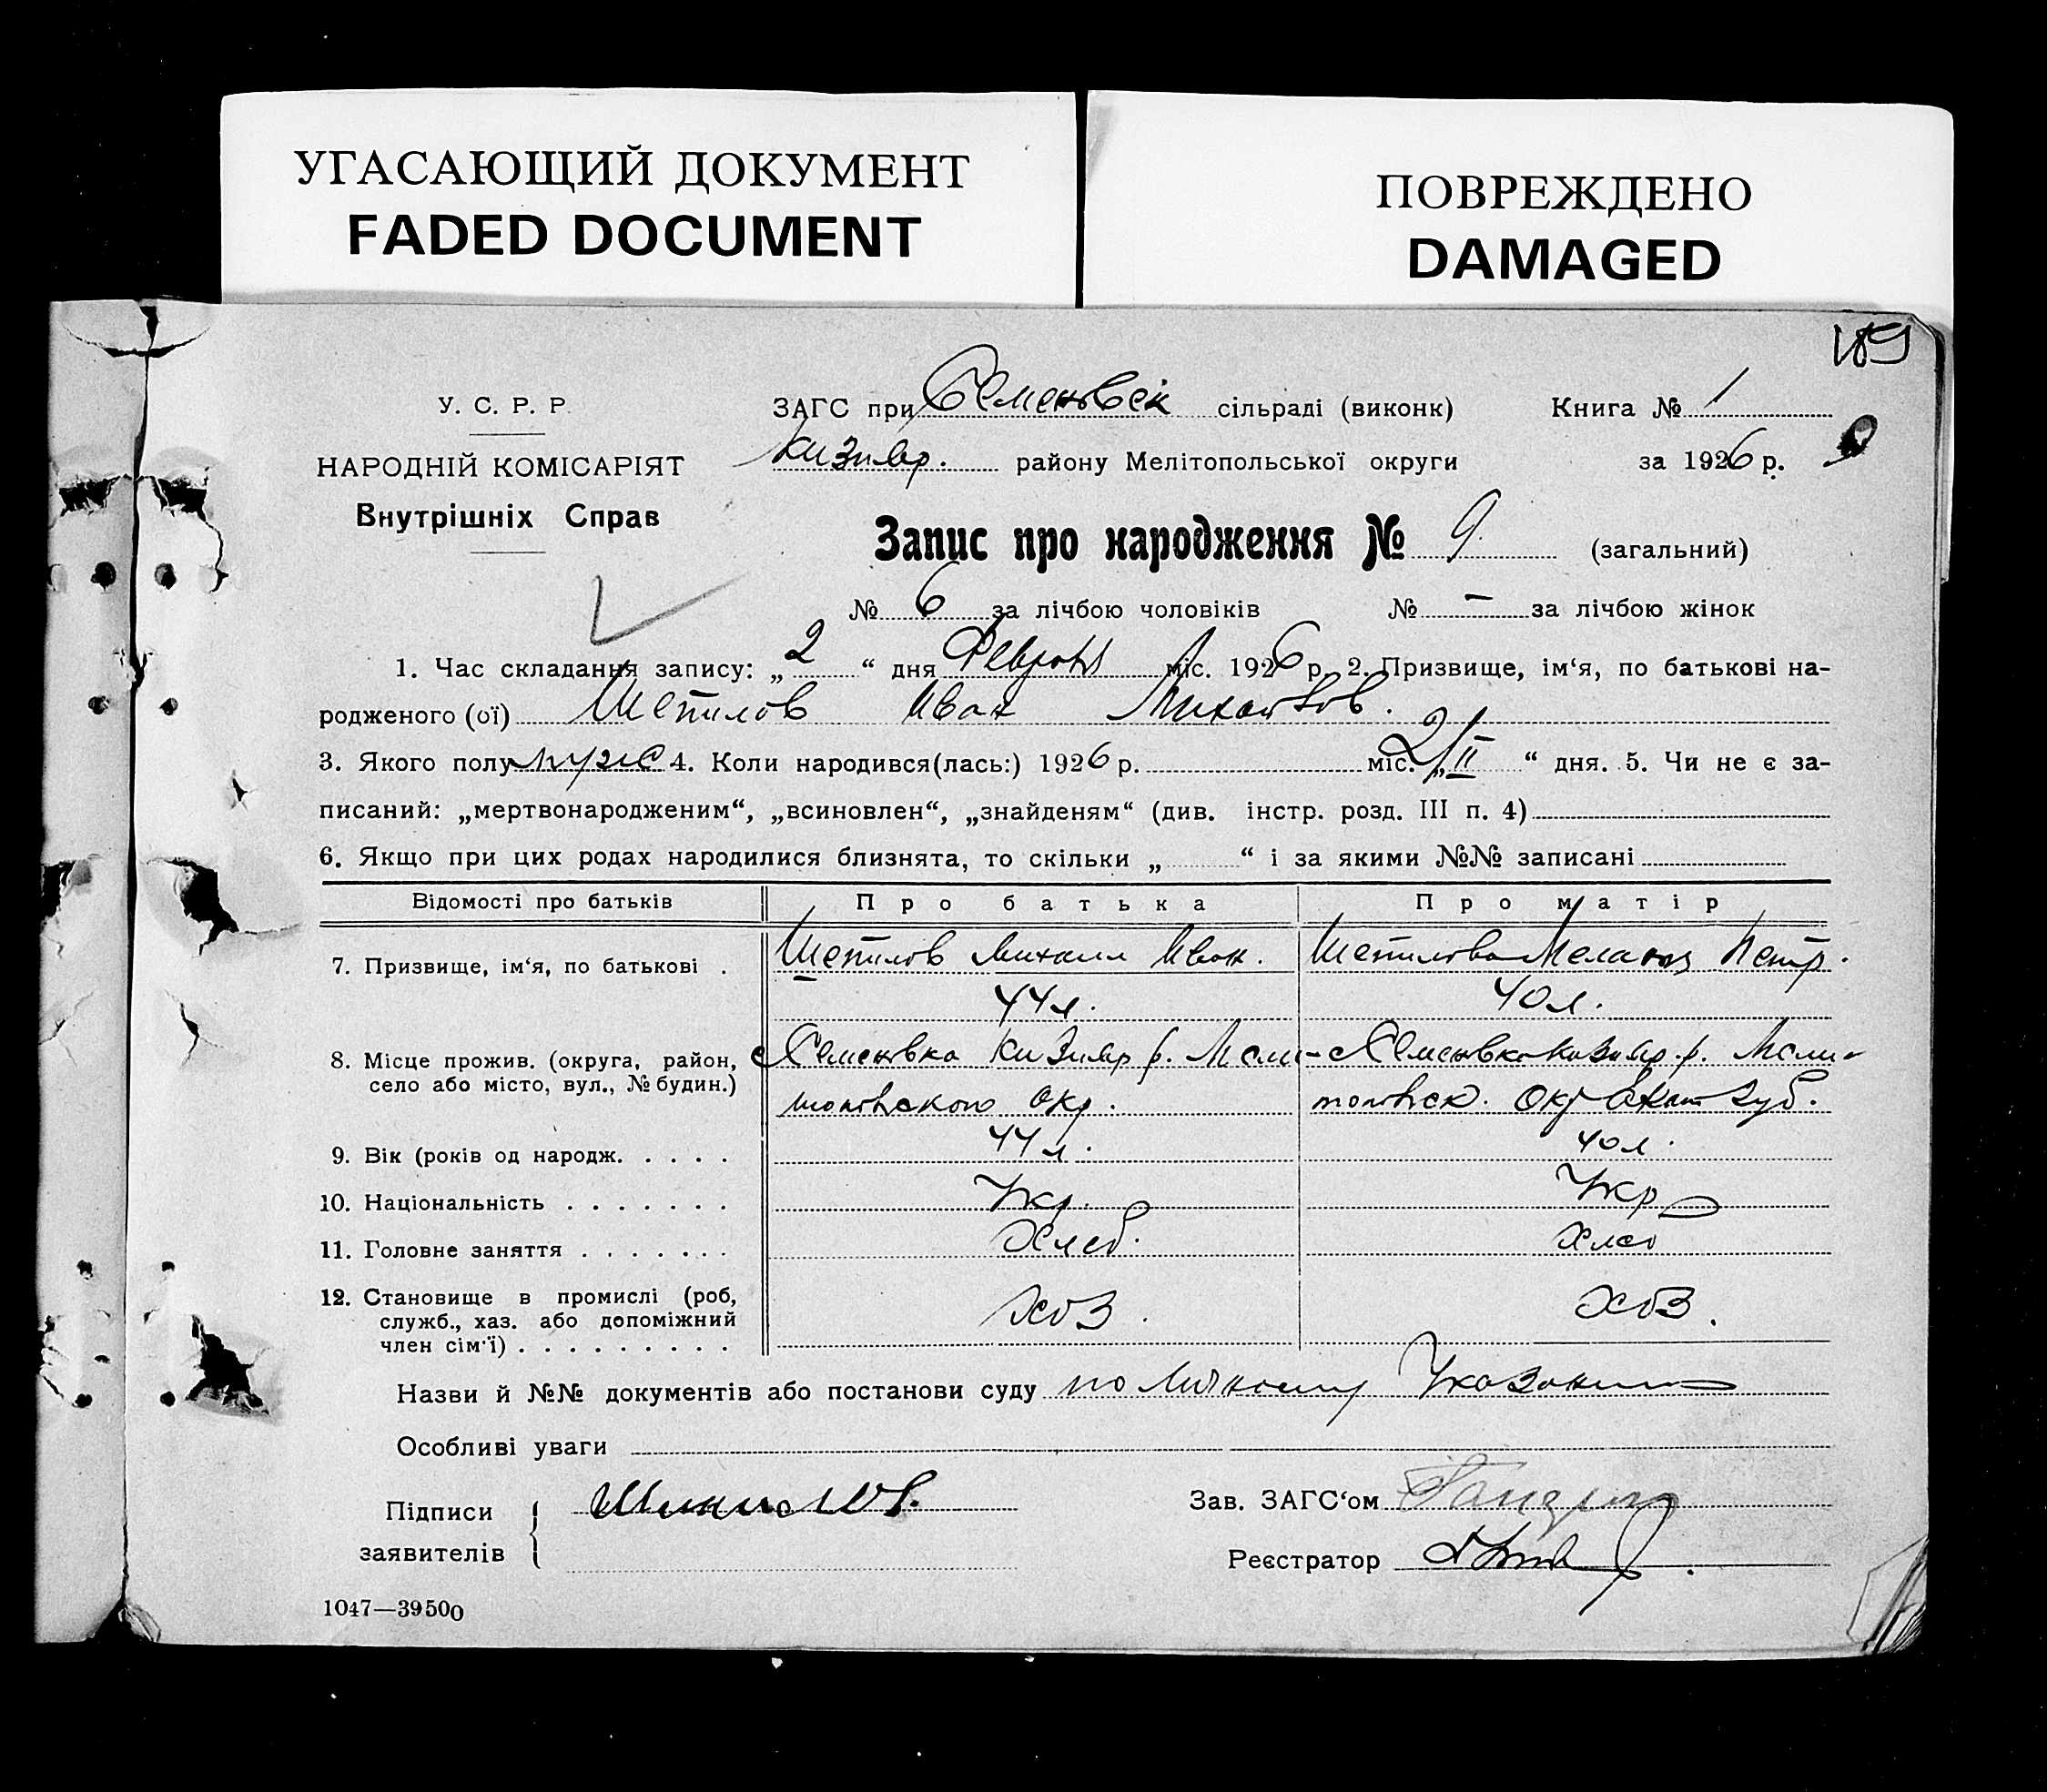 УГАСАЮЩИЙ ДОКУМЕНТ
FADED DOCUMENT
ПОВРЕЖДЕНО
DAMAGED
189
У. С. Р. Р.
НАРОДНІЙ КОМІСАРІЯТ
Внутрішніх Справ
ЗАГС при Семеновск сільраді (виконк) Книга № 1
Кизияр. району Мелітопольської округи за 1926 р.
9
Запис про народження № 9. (загальний)
№ 6 за лічбою чоловіків № – за лічбою жінок
1. Час складання запису: „2“ дня Февраля міс. 1926 р. 2. Призвище, ім‘я, по батькові на-
родженого (ої) Шепилов Иван Михайлов.
3. Якого полу муже 4. Коли народився(лась:) 1926 р. міс. „2/II“ дня. 5. Чи не є за-
писаний: „мертвонародженим“, „всиновлен“, „знайденям“ (див. інстр. розд. III п. 4)
6. Якщо при цих родах народилися близнята, то скільки „ “ і за якими №№ записані
Відомості про батьків Про батька Про матір
7. Призвище, ім‘я, по батькові . Шепилов Михаил Иван. Шепилова Мелания Петр.
44 л. 40 л.
8. Місце прожив. (округа, район, с Семеновка Кизияр р. Мели- с Семеновка Кизияр. р. Мели-
село або місто, вул., № будин.) топольского Окр. топольск. Окр
9. Вік (років од народж. . . . . 44 л. 40 л.
10. Національність . . . . . . . Укр. Укр
11. Головне заняття . . . . . . . Хлеб. Хлеб
12. Становище в промислі (роб, Хоз. Хоз.
служб., хаз. або допоміжний
член сім‘ї) . . . . . . . . .
Назви й №№ документів або постанови суду по личному Указанию
Особливі уваги
Підписи
заявителів
Зав. ЗАГС‘ом
Реєстратор
1047—39500